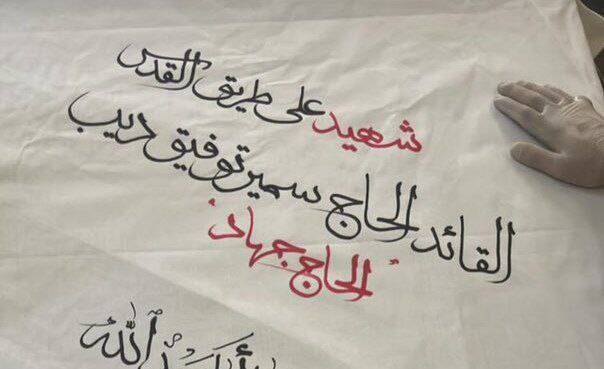 شهيد على طريق القدس
القائد الحاج سمير توفيق ديب
"الحاج جهاد"
الله